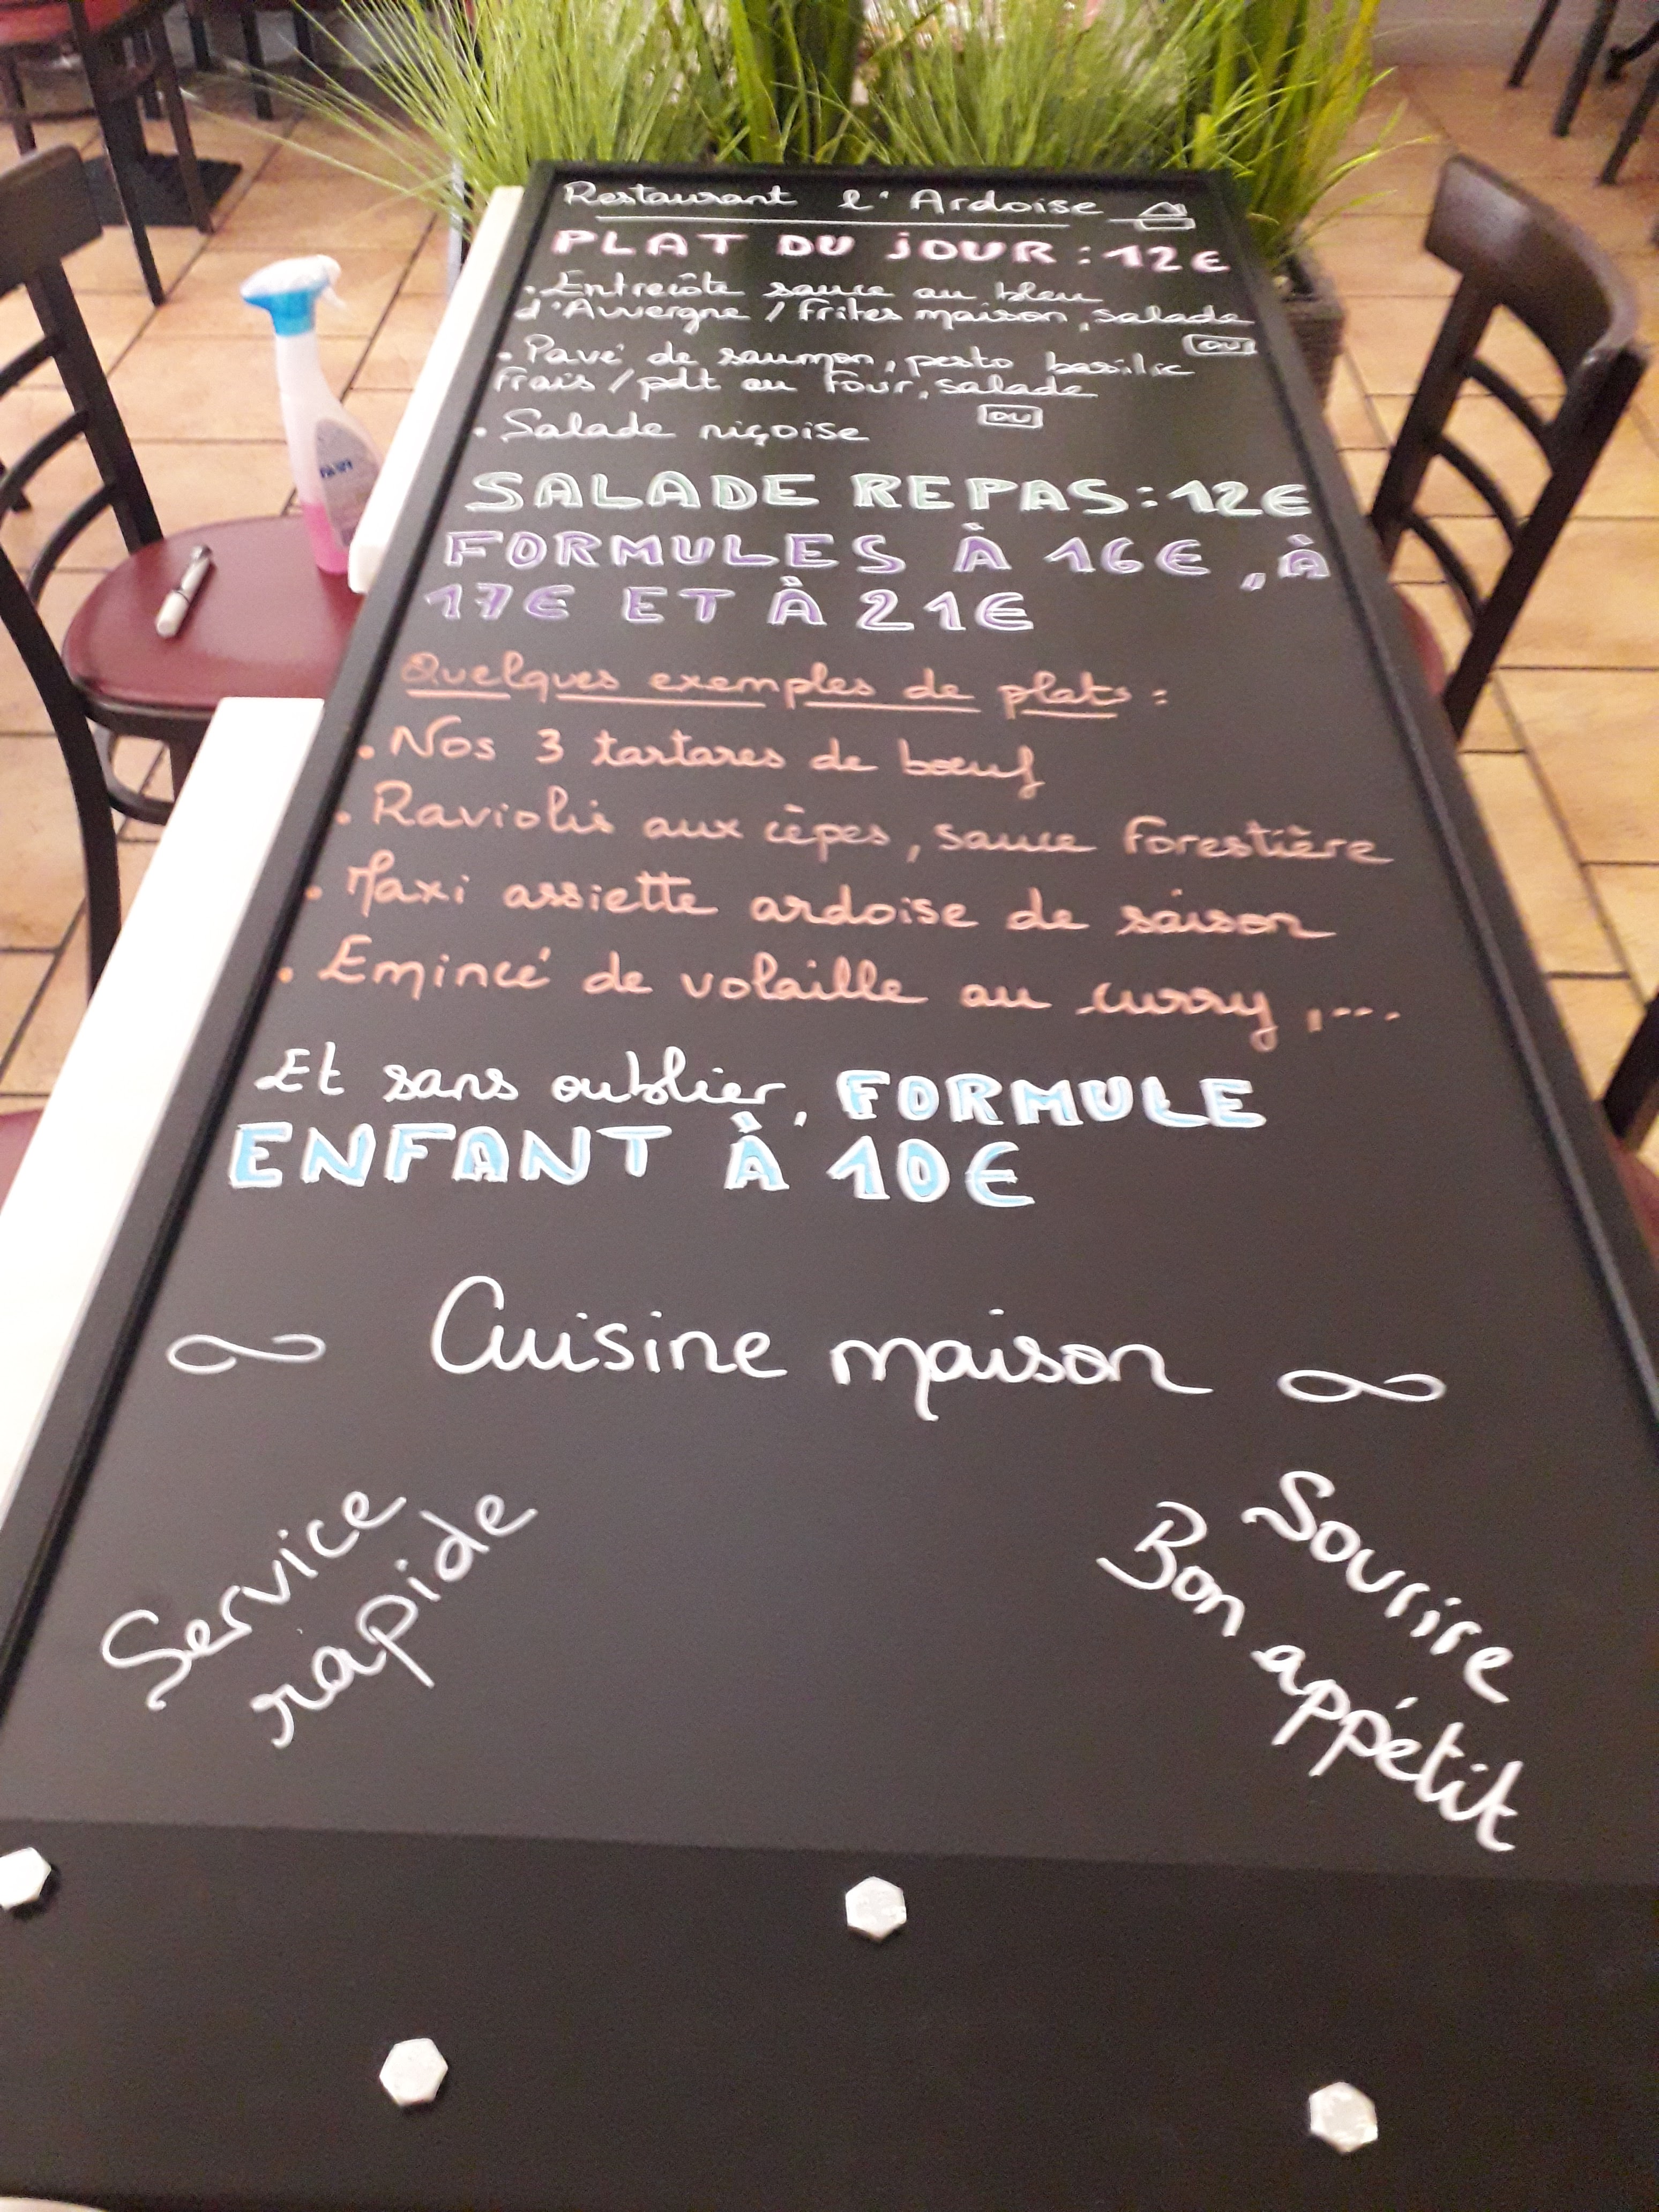 Restaurant l'Ardoise
PLAT DU JOUR : 12€
• Entrecôte sauce au bleu
d'Auvergne / Frites maison, salade
OU
• Pavé de saumon, pesto basilic
Frais / pdt au Four, salade
OU
• Salade niçoise
SALADE REPAS : 12€
FORMULES À 16€, À
17€ ET À 21€
Quelques exemples de plats :
• Nos 3 tartares de bœuf
• Raviolis aux cèpes, sauce Forestière
• Maxi assiette ardoise de saison
• Emincé de volaille au curry, ...
Et sans oublier, FORMULE
ENFANT À 10€
Cuisine maison
Service
rapide
Sourire
Bon appétit